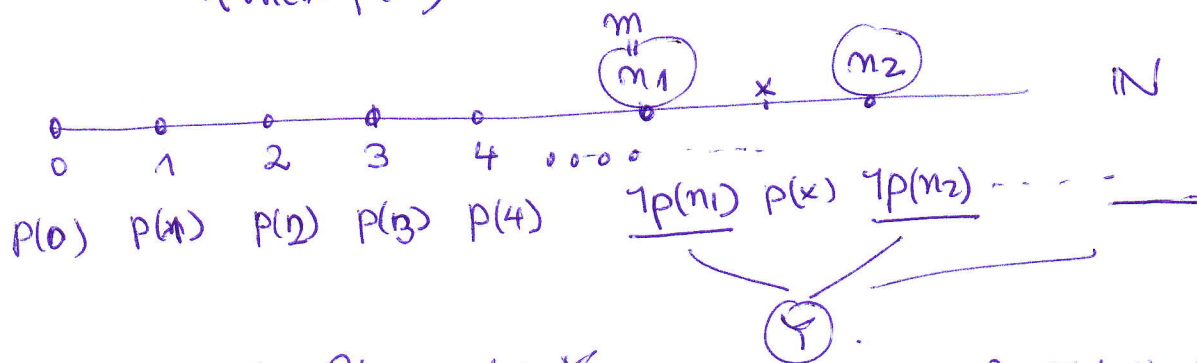 m
||
n1 x n2 ℕ
0 1 2 3 4 ....  - - - -
P(0) P(1) P(2) P(3) P(4) ¬p(n1) p(x) ¬p(n2) - - - -
Y .